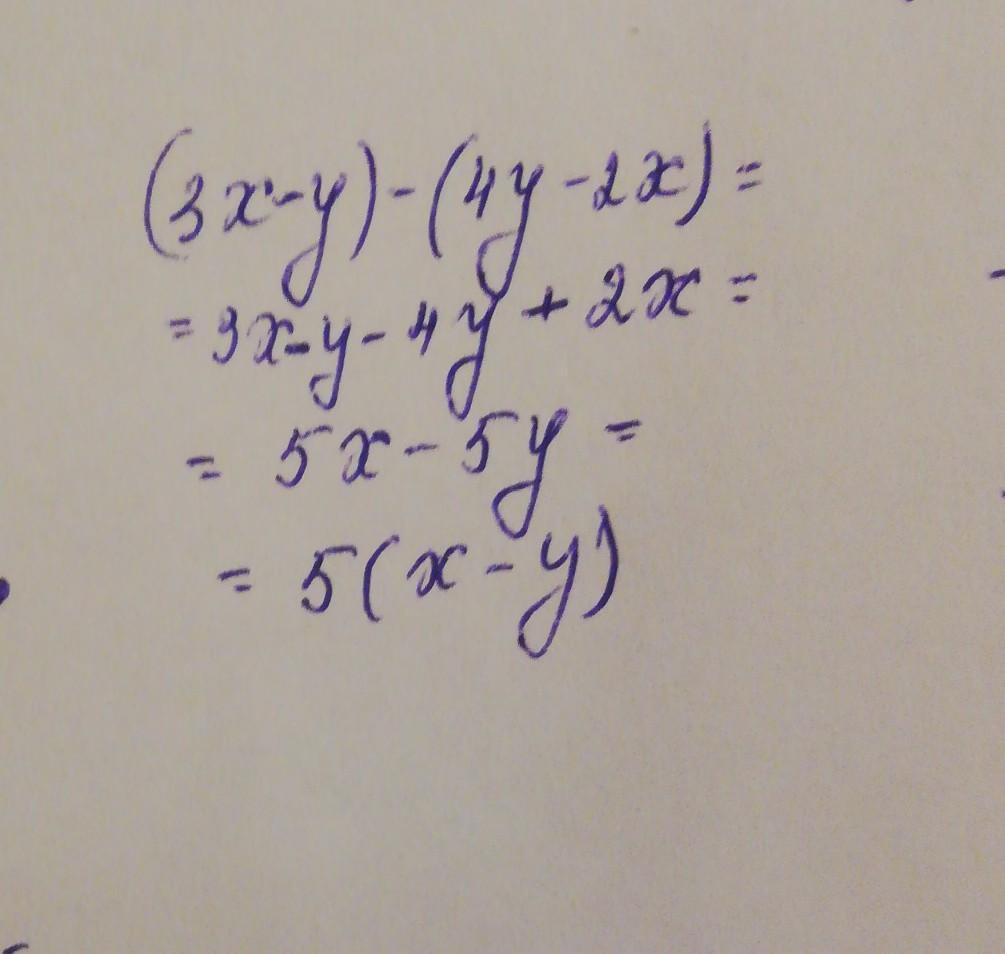 (3x-y)-(4y-2x)=
=3x-y-4y+2x=
= 5x-5y =
= 5(x-y)